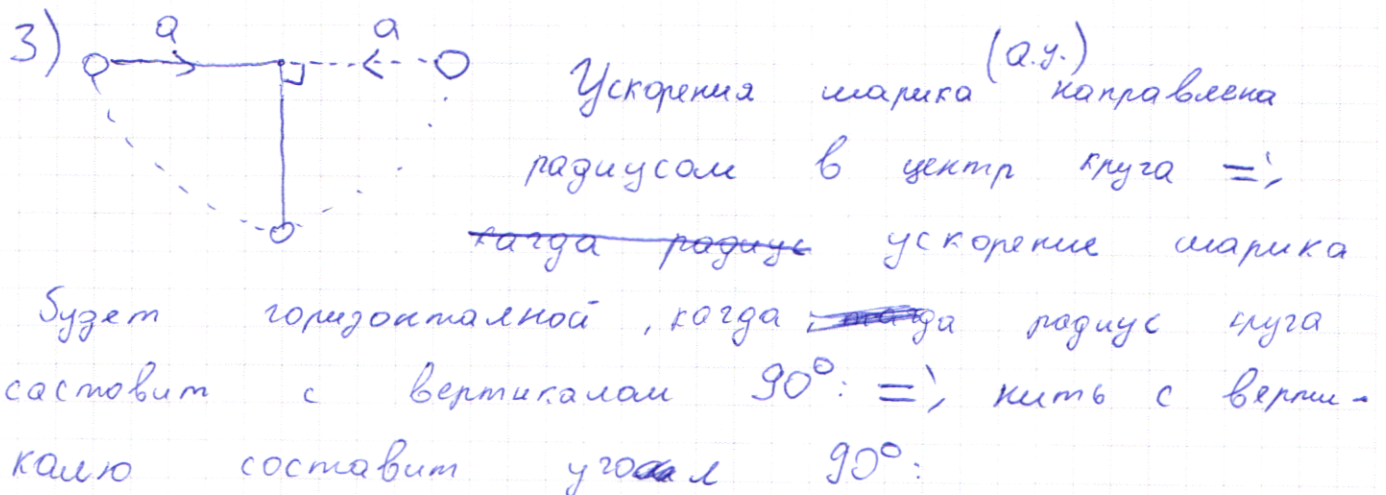 3) a a (а.у.)
Ускорения шарика направлена
радиусом в центр круга =>
кагда радиус ускорение шарика
будет горизонталной, кагда радиус круга
саставит с вертикалом 90°: => нить с верти-
калю составит угол 90°: